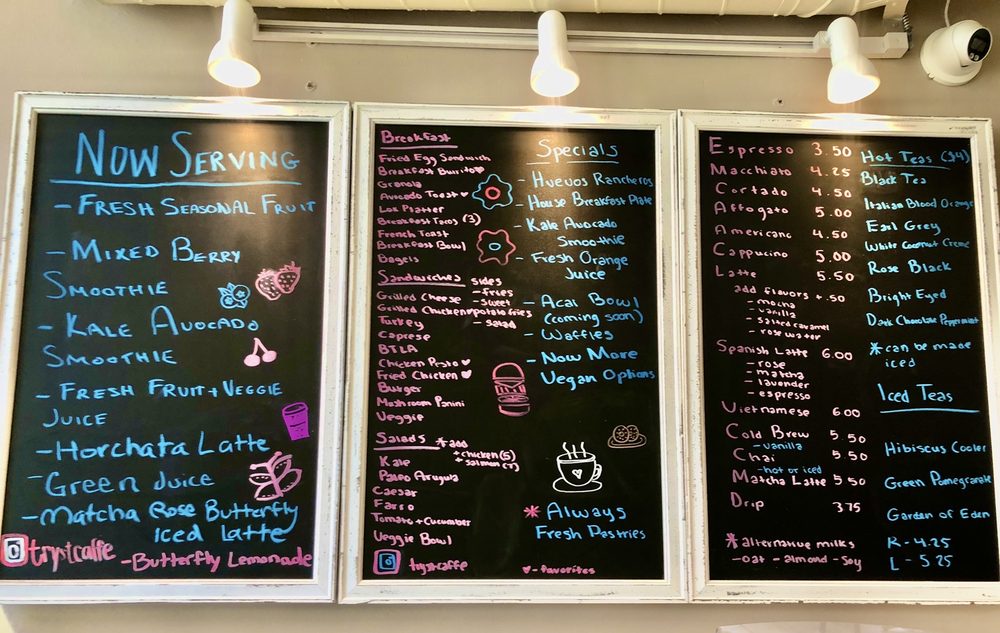 NOW SERVING
- FRESH SEASONAL FRUIT
- MIXED BERRY
SMOOTHIE
- KALE AVOCADO
SMOOTHIE
- FRESH FRUIT + VEGGIE
JUICE
- HORCHATA LATTE
- GREEN JUICE
- MATCHA ROSE BUTTERFLY
ICED LATTE
trystcaffe
- BUTTERFLY LEMONADE
Breakfast
Fried Egg Sandwich
Breakfast Burrito
Granola
Avocado Toast
Lox Platter
Breakfast Tacos (3)
French Toast
Breakfast Bowl
Bagels
Sandwiches
Sides
- fries
- sweet
potato fries
- salad
Grilled Cheese
Grilled Chicken
Turkey
Caprese
BTLA
Chicken Pesto
Fried Chicken
Burger
Mushroom Panini
Veggie
Salads
*add
+ chicken (5)
+ salmon (7)
Kale
Paleo Arugula
Caesar
Farro
Tomato + Cucumber
Veggie Bowl
trystcaffe
Specials
- Huevos Rancheros
- House Breakfast Plate
- Kale Avocado
Smoothie
- Fresh Orange
Juice
- Acai Bowl
(coming soon)
- Waffles
- Now More
Vegan Options
*Always
Fresh Pastries
- favorites
Espresso 3.50
Macchiato 4.25
Cortado 4.50
Affogato 5.00
Americano 4.50
Cappucino 5.00
Latte 5.50
add flavors + .50
- mocha
- vanilla
- salted caramel
- rose water
Spanish Latte 6.00
- rose
- matcha
- lavender
- espresso
Vietnamese 6.00
Cold Brew 5.50
- vanilla
Chai 5.50
- hot or iced
Matcha Latte 5.50
Drip 3.75
*alternative milks
- oat - almond - soy
Hot Teas ($4)
Black Tea
Italian Blood Orange
Earl Grey
White Coconut Creme
Rose Black
Bright Eyed
Dark Chocolate Peppermint
*can be made
iced
Iced Teas
Hibiscus Cooler
Green Pomegranate
Garden of Eden
R - 4.25
L - 5.25